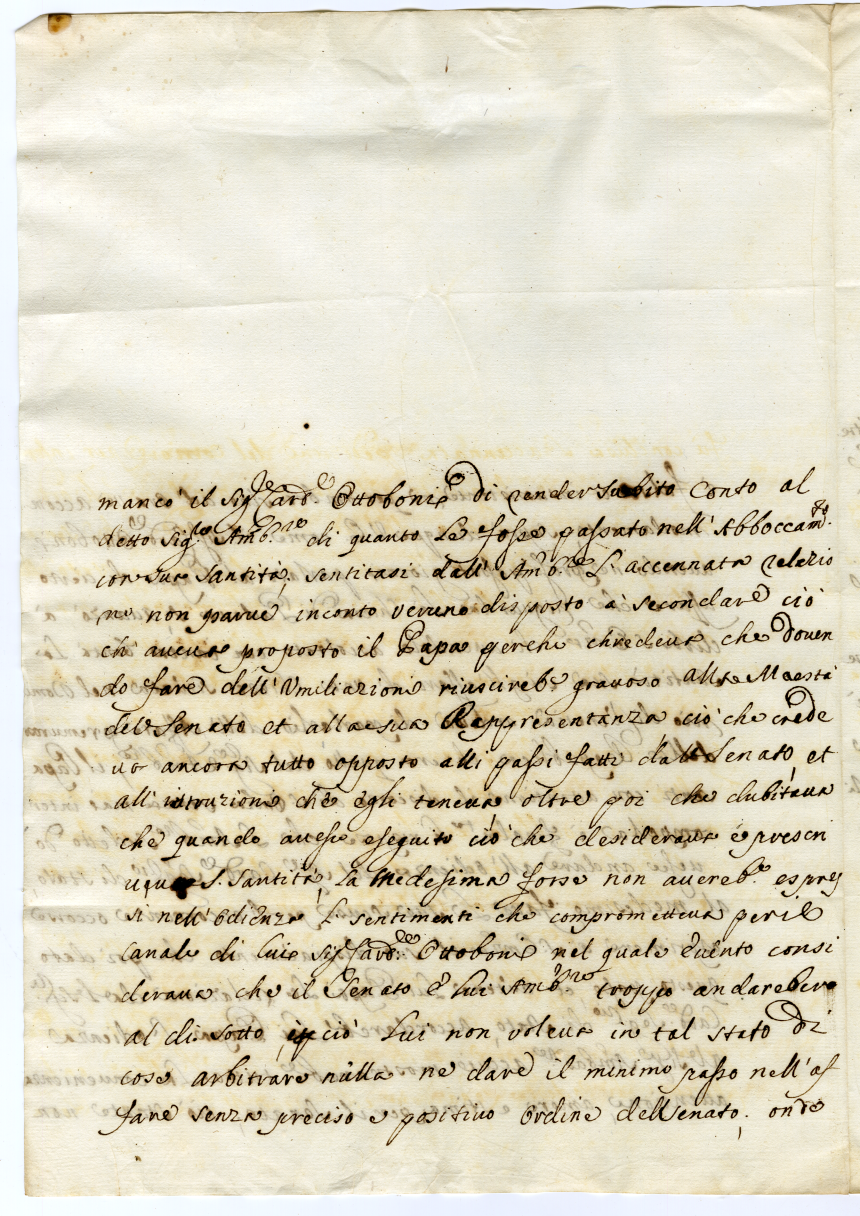 mancò il Sig.re Card.e Ottoboni di render subito conto al
detto Sig.re Amb.re di quanto Le fosse passato nell'Abboccam.to
con sua Santità; sentitasi dall'Amb.re l'accennata relazio
ne non parue inconto veruno disposto à secondare ciò
ch'aueua proposto il Papa perche chredeua che douen
do fare dell'Vmiliazioni riuscireb.e grauoso alla Maestà
del Senato et alla sua Rappresentanza ciò che crede
ua ancora tutto opposto alli passi fatti dal Senato, et
all'istruzioni che egli teneua oltre poi che dubitaua
che quando auesse eseguito ciò che desideraua e prescri
ueua S. Santità, la Medesima forse non auereb.e espres
si nell'Odienza l. sentimenti che comprometteua per il
Canale di lui Sig.r Card.e Ottoboni nel quale euento consi
deraua che il Senato e lui Amb.re troppo andarebero
al di sotto, p ciò lui non voleua in tal stato di
cose arbitrare nulla ne dare il minimo passo nell'af
fare senza preciso e positiuo ordine del Senato; onde